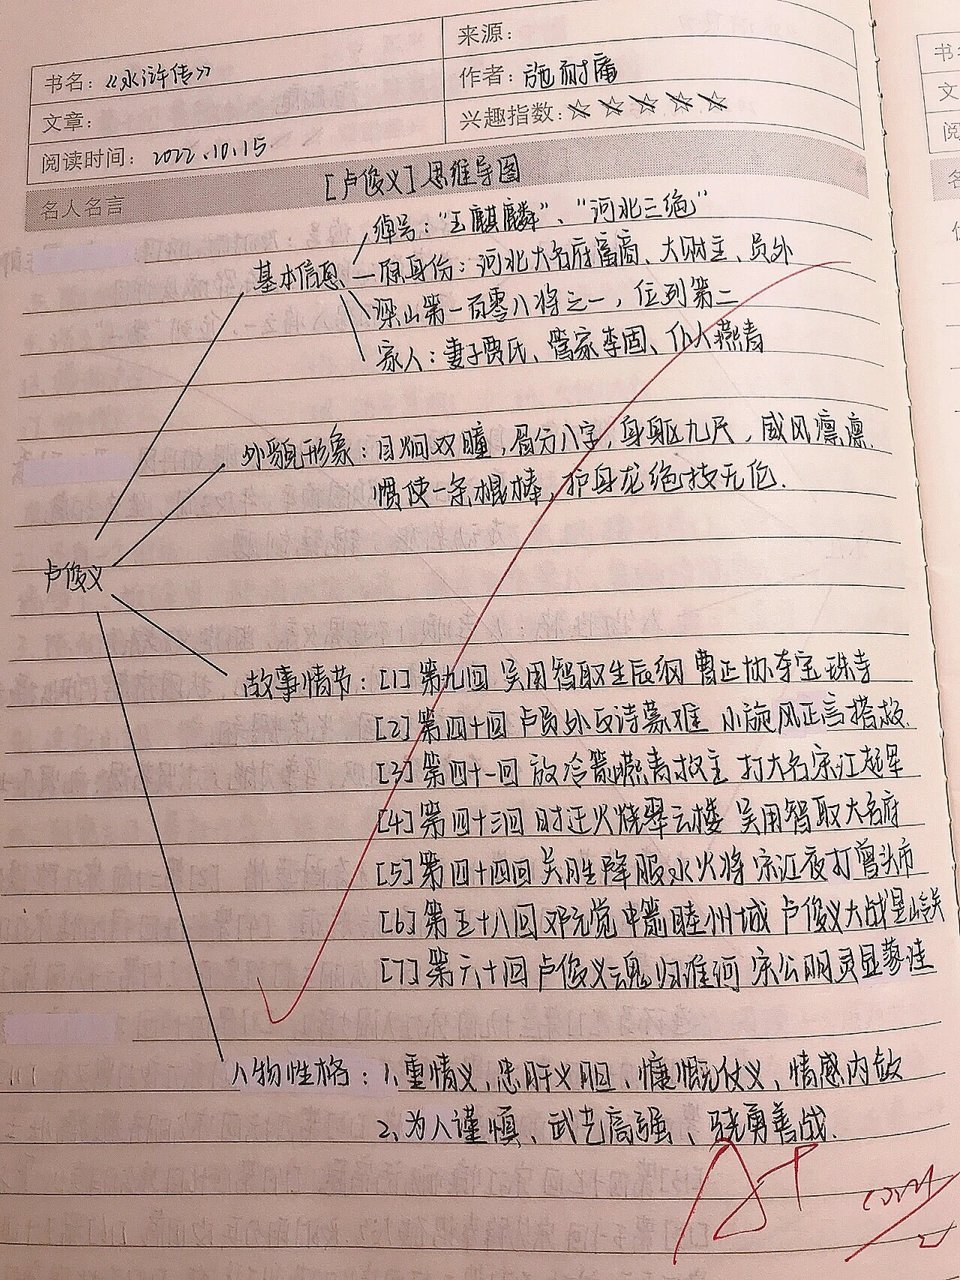 来源：
书名：《水浒传》
作者：施耐庵
文章：
兴趣指数：☆☆☆☆☆
阅读时间：2022.10.15
[卢俊义]思维导图
名人名言
绰号："玉麒麟"、"河北三绝"
基本信息
原身份：河北大名府富商、大财主、员外
梁山第一百零八将之一，位列第二
家人：妻子贾氏、管家李固、仆人燕青
外貌形象：目炯双瞳，眉分八字，身躯九尺，威风凛凛.
惯使一条棍棒，护身龙绝技无伦.
卢俊义
故事情节：[1]第九回 吴用智取生辰纲 曹正协夺宝珠寺
[2]第四十回 卢员外反诗蒙难 小旋风正言搭救.
[3]第四十一回 放冷箭燕青救主 打大名宋江起军
[4]第四十三回 时迁火烧翠云楼 吴用智取大名府
[5]第四十四回 关胜降服水火将 宋江夜打曾头市
[6]第五十八回 邓元觉中箭睦州城 卢俊义大战昱岭关
[7]第六十回 卢俊义魂归淮河 宋公明灵显蓼洼
人物性格：1、重情义，忠肝义胆、慷慨仗义，情感内敛
2、为人谨慎、武艺高强、骁勇善战.
A+